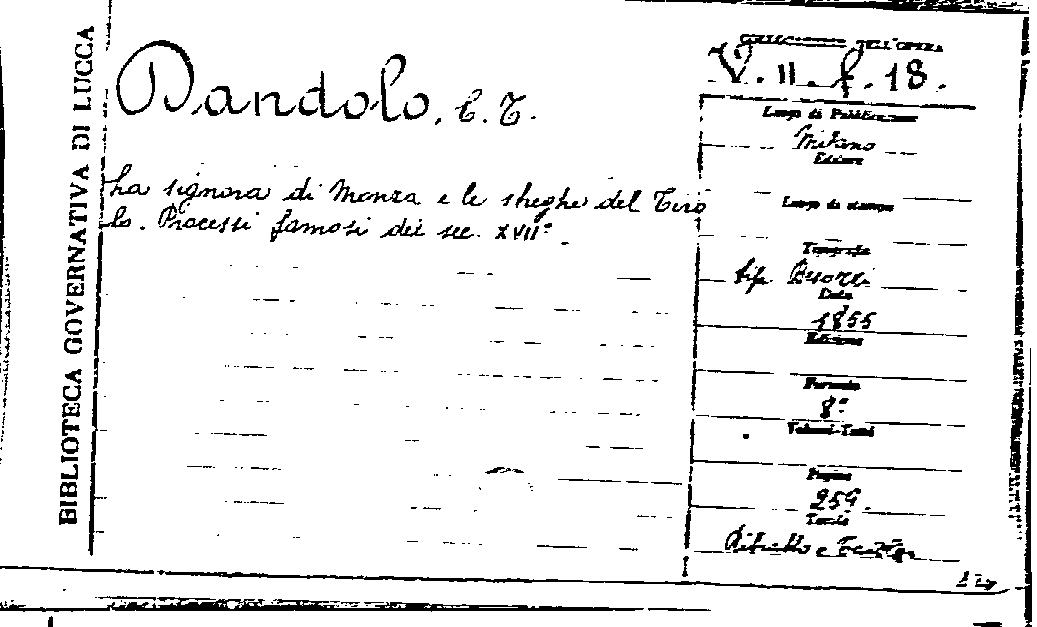 BIBLIOTECA GOVERNATIVA DI LUCCA
Dandolo, C. T.
La signora di Monza e le streghe del Tiro
lo. Processi famosi del sec. XVII°.
DELL'OPERA
V. II. f. 18.
Luogo di Pubblicazione
Milano
Editore
Luogo di stampa
Tipografia
tip.
Data
1855
Edizione
Formato
8°
Volumi-Tomi
Pagine
259.